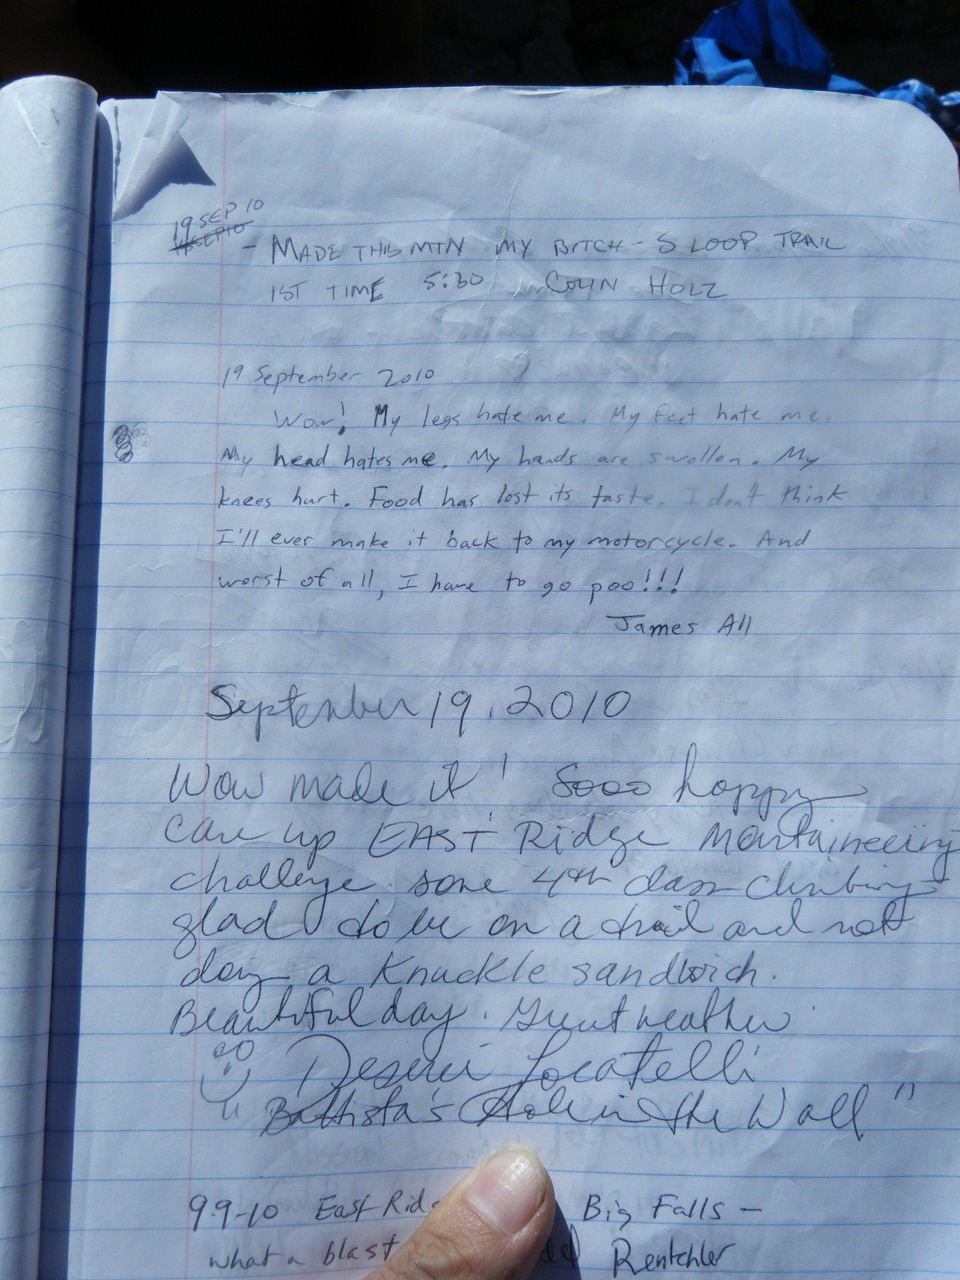 19 SEP 10
- MADE THIS MTN MY BITCH - S LOOP TRAIL
1ST TIME 5:30 COLIN HOLZ
19 September 2010
Wow! My legs hate me. My feet hate me.
My head hates me. My hands are swollen. My
knees hurt. Food has lost its taste. I don't think
I'll ever make it back to my motorcycle. And
worst of all, I have to go poo!!!
James All
September 19, 2010
Wow made it! Sooo happy
came up EAST Ridge Mountaineering
challenge. some 4th class climbing
glad to be on a trail and not
doing a Knuckle sandwich.
Beautiful day. Great weather.
Locatelli
Battista's Hole in the Wall"
9-9-10 East Big Falls -
what a blast Rentchler